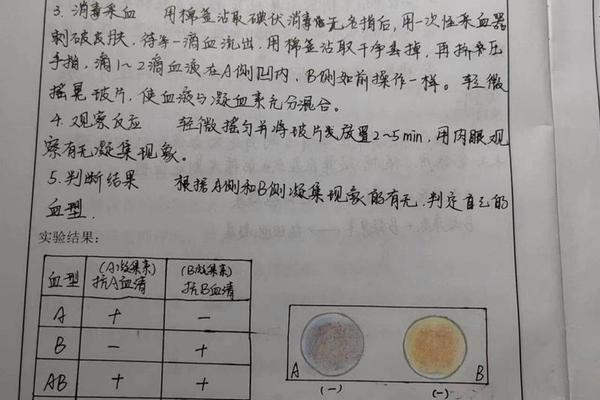 3. 消毒采血 用棉签沾取碘伏消毒无名指后,用一次性采血器
刺破皮肤,待第一滴血流出,用棉签沾取干净丢掉,再挤压
手指,滴1~2滴血液在A侧凹内,B侧如前操作一样。轻微
摇晃玻片,使血液与凝血素充分混合。
4. 观察反应 轻微摇匀并将玻片放置2~5min,用肉眼观
察有无凝集现象。
5. 判断结果 根据A侧和B侧凝集现象的有无,判定自己的
血型.
实验结果:
血型 (A凝集素)抗A血清 (B凝集素)抗B血清
A + −
B − +
AB + +
A B
(−) (−)